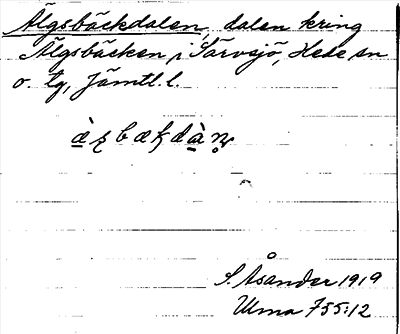 Älgsbäckdalen, dalen kring
Älgsbäcken i Särvsjö, Hede sn
o. tg, Jämtl. l.
S. Åsander 1919
Ulma 755:12